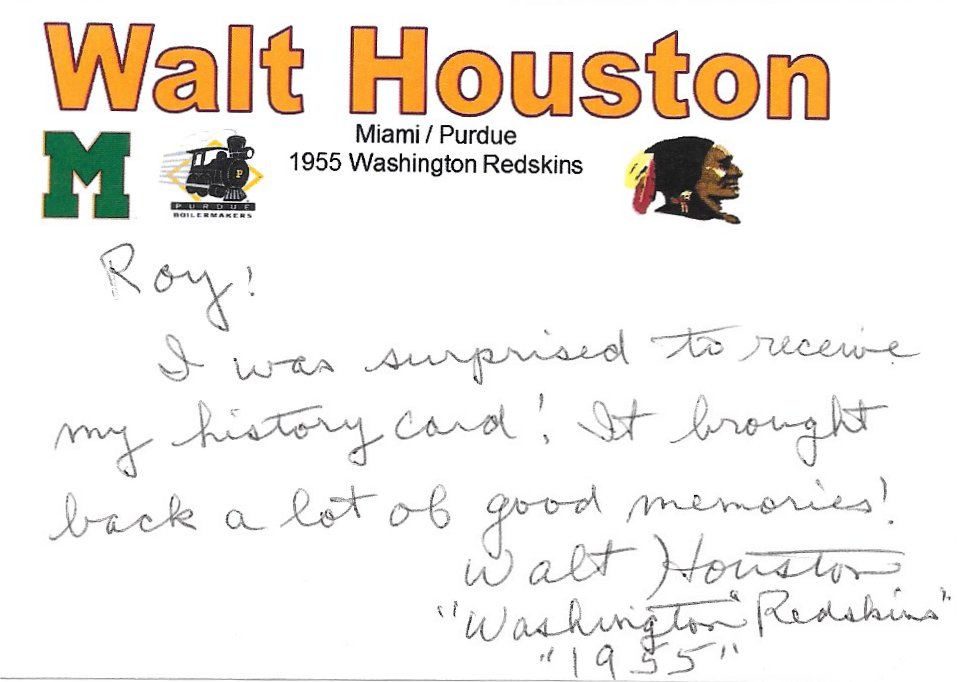 Walt Houston
Miami / Purdue
1955 Washington Redskins
M
P
PURDUE
BOILERMAKERS
Roy!
I was surprised to receive
my history card! It brought
back a lot of good memories!
Walt Houston
"Washington" Redskins"
"1955"